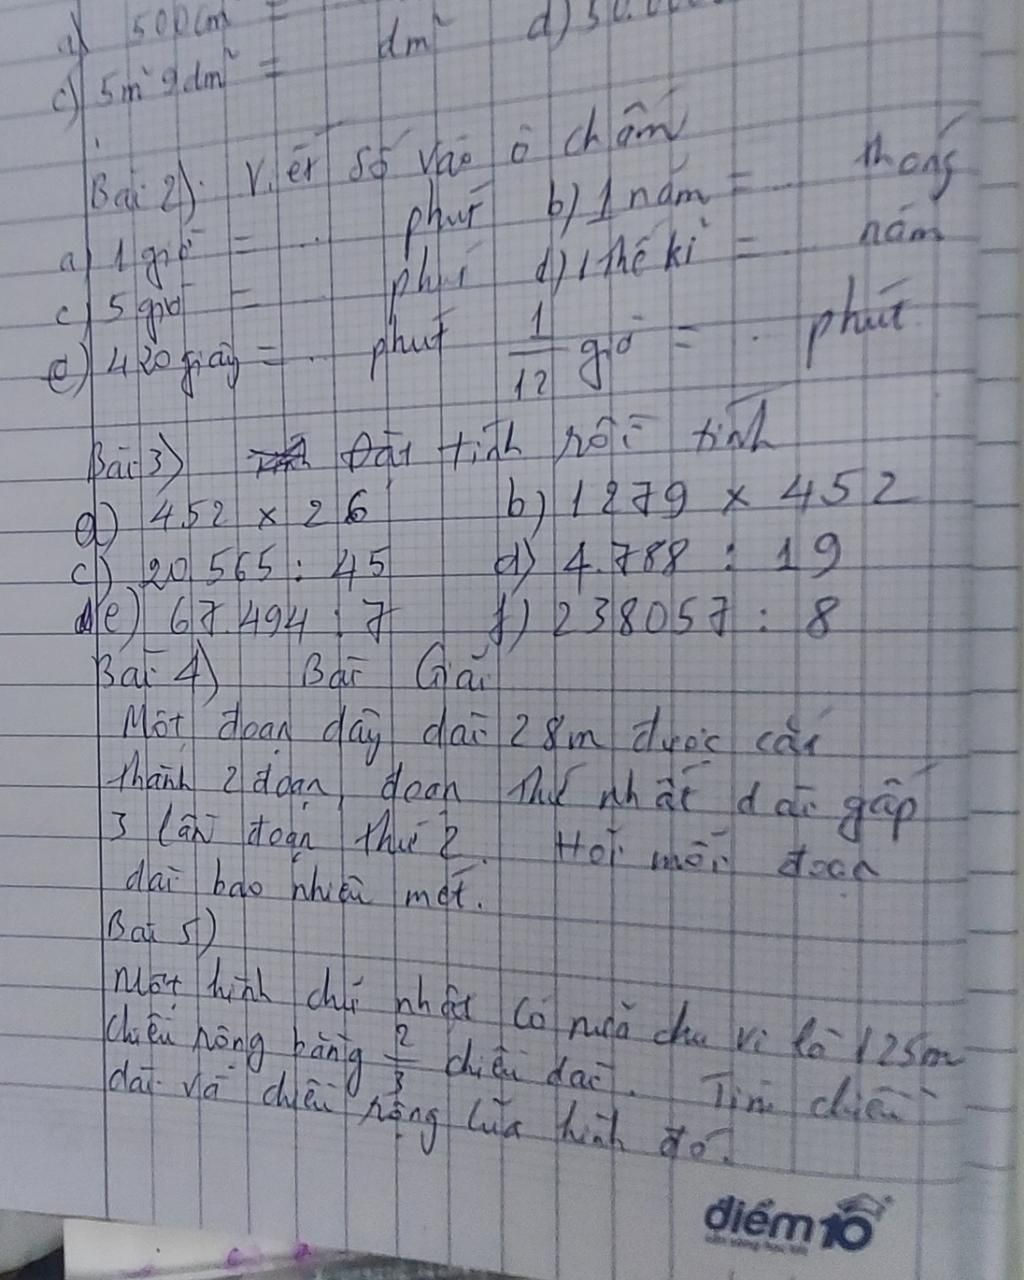 a) 500cm² =
c) 5m² 9dm² = dm² d) 50.0
Bài 2). Viết số vào ô chấm
a) 1 giờ = .. phút b) 1 năm = .. tháng
c) 5 giờ = phút d) 1 thế kỉ = năm
e) 420 giây = . phút 1/12 giờ = . phút
Bài 3) Đặt tính rồi tính
a) 452 x 26 b) 1279 x 452
c) 20 565 : 45 d) 4.788 : 19
e) 67.494 : 7 f) 238057 : 8
Bài 4) Bài Giải
Một đoạn dây dài 28m được cắt
thành 2 đoạn, đoạn thứ nhất dài gấp
3 lần đoạn thứ 2. Hỏi mỗi đoạn
dài bao nhiêu mét.
Bài 5)
Một hình chữ nhật có nửa chu vi là 125m
chiều rộng bằng 2/3 chiều dài. Tìm chiều
dài và chiều rộng của hình đó.
điểm 10